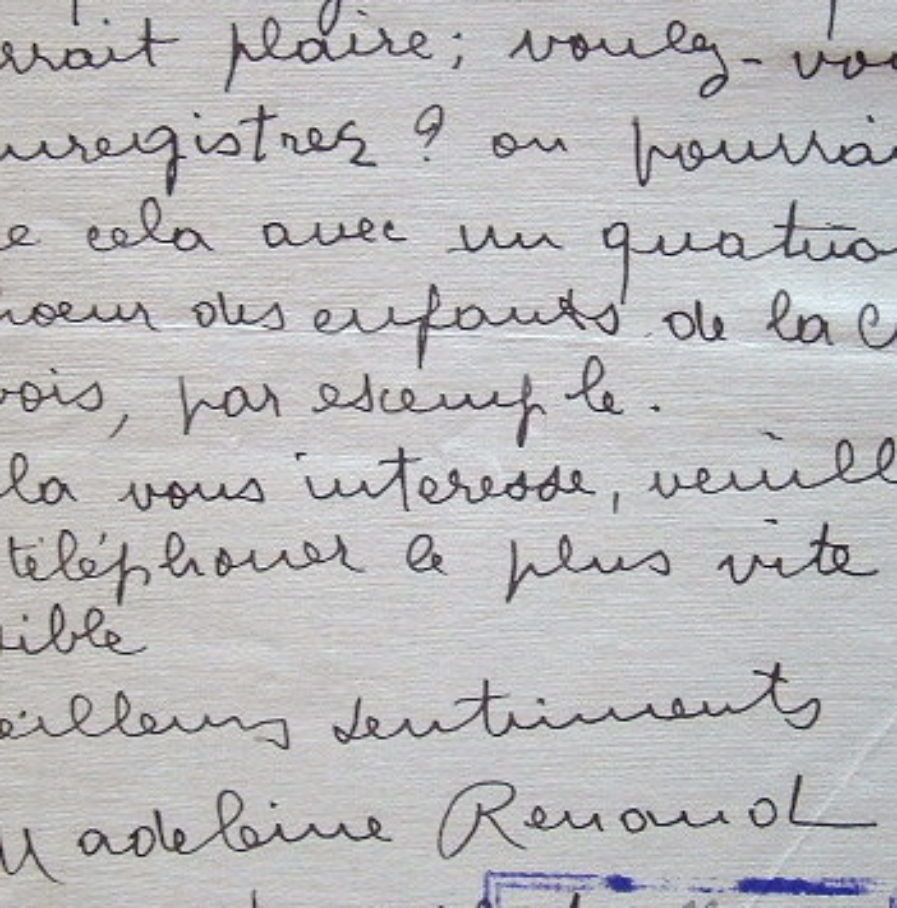 rrait plaire; voulez-vou
enregistrez? on pourrai
e cela avec un quatuo
hoeur des enfants de la C
vois, par exemple.
la vous interesse, veuill
téléphoner le plus vite
sible
eilleurs sentiments
Madeleine Renaud